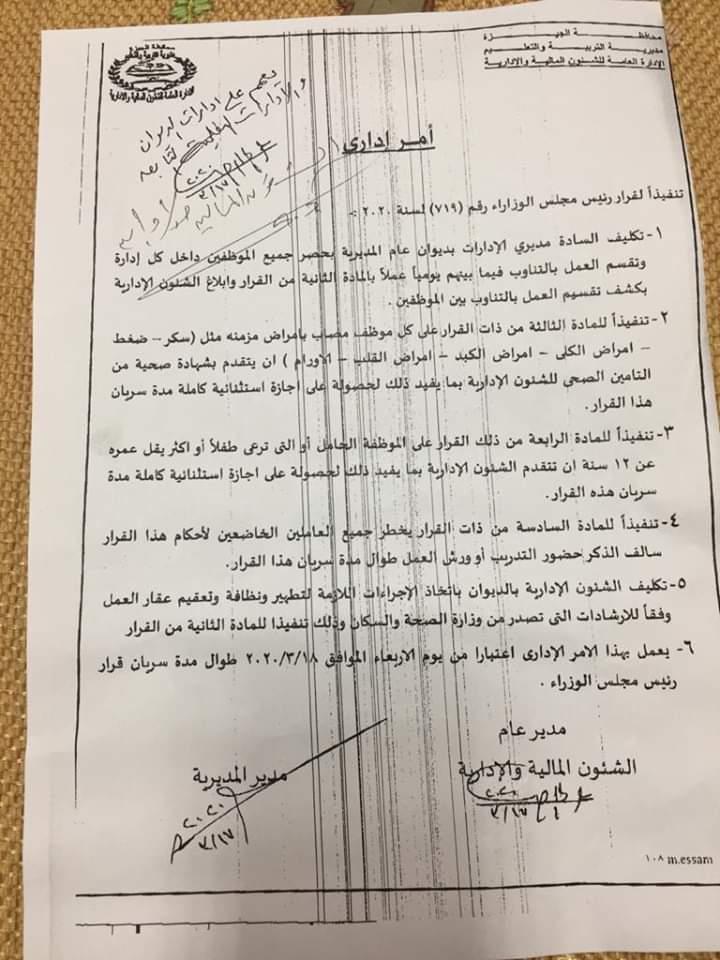 محافظة الجيزة
مديرية التربية والتعليم
الإدارة العامة للشئون المالية والإدارية
محافظة الجيزة
مديرية التربية والتعليم
الإدارة العامة للشئون المالية والإدارية
يعمم على إدارات الديوان
والإدارات التعليمية التابعة
٢٠٢٠
٣/١٧
أمر إدارى
تنفيذاً لقرار رئيس مجلس الوزاراء رقم (٧١٩) لسنة ٢٠٢٠ :-
١- تكليف السادة مديري الإدارات بديوان عام المديرية بحصر جميع الموظفين داخل كل إدارة
وتقسم العمل بالتناوب فيما بينهم يومياً عملاً بالمادة الثانية من القرار وابلاغ الشئون الإدارية
بكشف تقسيم العمل بالتناوب بين الموظفين .
٢- تنفيذاً للمادة الثالثة من ذات القرار على كل موظف مصاب بامراض مزمنه مثل (سكر – ضغط
– امراض الكلى – امراض الكبد – امراض القلب – الاورام ) ان يتقدم بشهادة صحية من
التامين الصحى للشئون الإدارية بما يفيد ذلك لحصولة على اجازة استثنائية كاملة مدة سريان
هذا القرار .
٣- تنفيذاً للمادة الرابعة من ذلك القرار على الموظفة الحامل أو التى ترعى طفلاً أو اكثر يقل عمره
عن ١٢ سنة ان تتقدم الشئون الإدارية بما يفيد ذلك لحصولة على اجازة استثنائية كاملة مدة
سريان هذه القرار.
٤- تنفيذاً للمادة السادسة من ذات القرار يخطر جميع العاملين الخاضعين لأحكام هذا القرار
سالف الذكر حضور التدريب أو ورش العمل طوال مدة سريان هذا القرار.
٥- تكليف الشئون الإدارية بالديوان باتخاذ الإجراءات اللازمة لتطهير ونظافة وتعقيم عقار العمل
وفقاً للارشادات التى تصدر من وزارة الصحة والسكان وذلك تنفيذا للمادة الثانية من القرار
٦- يعمل بهذا الامر الإدارى اعتبارا من يوم الاربعاء الموافق ٢٠٢٠/٣/١٨ طوال مدة سريان قرار
رئيس مجلس الوزراء .
مدير عام
الشئون المالية والإدارية
٢٠٢٠
٣/١٧
مدير المديرية
٢٠٢٠
٣/١٧
١٠٨ m.essam